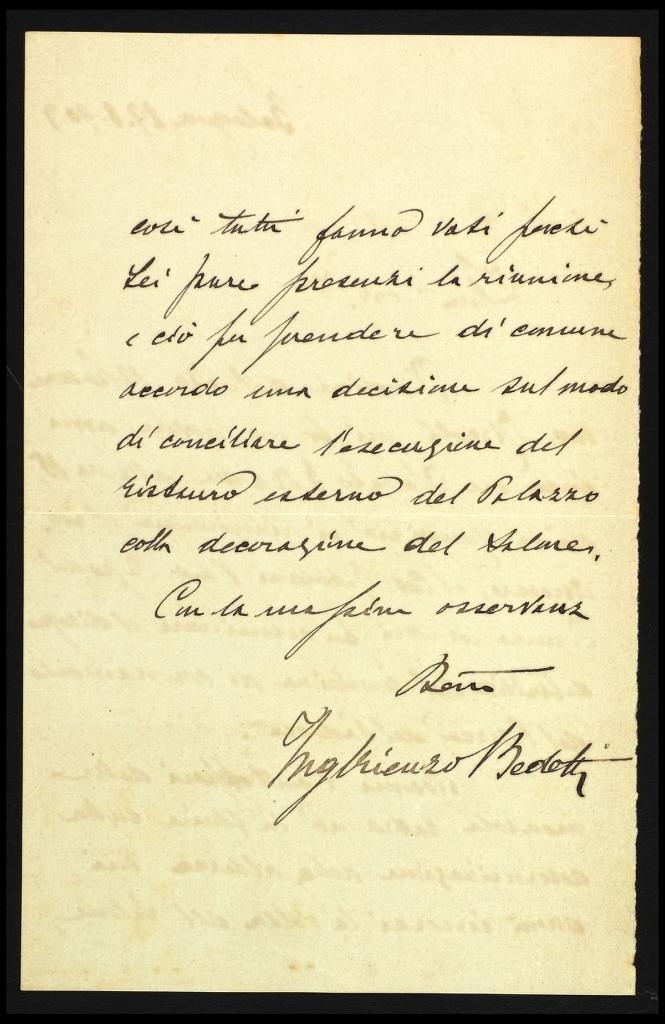 così tutti fanno voti perchè
Lei pure presenzi la riunione,
e ciò per prendere di comune
accordo una decisione sul modo
di conciliare l'esecuzione del
ristauro esterno del Palazzo
colla decorazione del Salone.
Con la massima osservanza
Ing Rienzo Bedetti